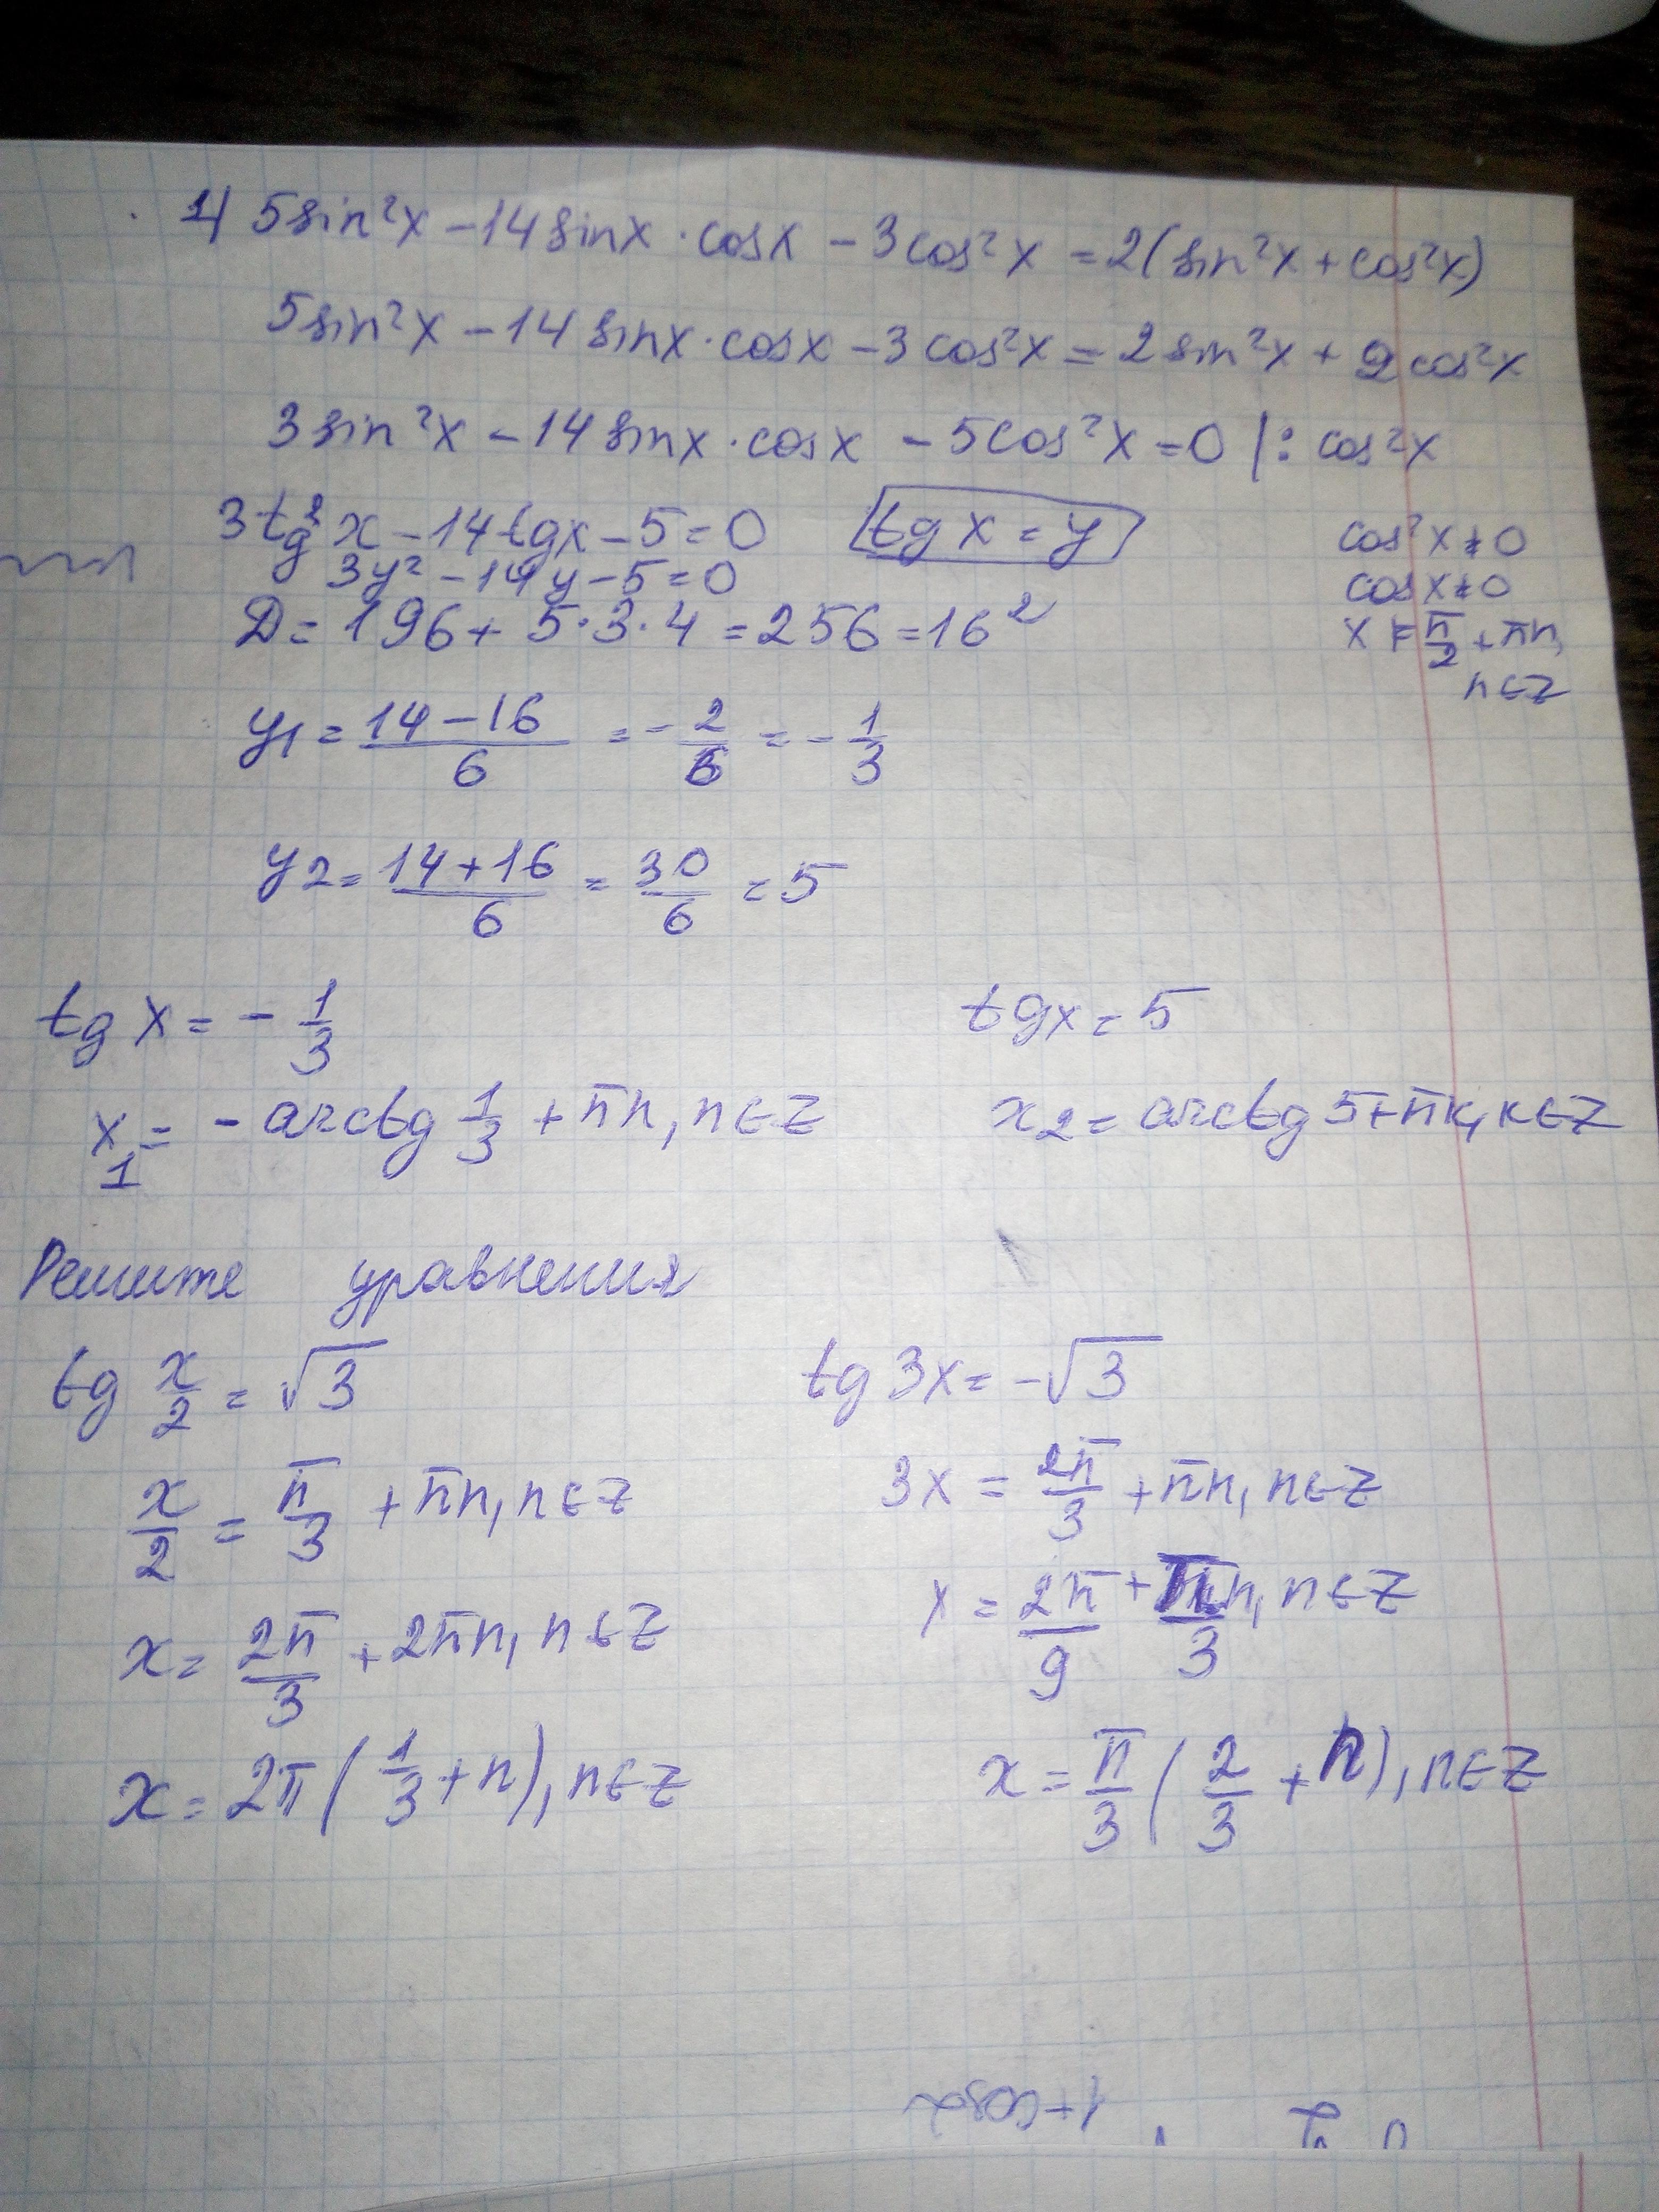 1) 5sin²x - 14sinx · cosx - 3cos²x = 2(sin²x + cos²x)
5sin²x - 14sinx · cosx - 3cos²x = 2sin²x + 2cos²x
3sin²x - 14sinx · cosx - 5cos²x = 0 | : cos²x
3tg²x - 14tgx - 5 = 0   tgx = y   cos²x ≠ 0
3y² - 14y - 5 = 0   cosx ≠ 0
D = 196 + 5·3·4 = 256 = 16²   x ≠ π/2 + πn,
n∈Z
y1 = (14 - 16)/6 = -2/6 = -1/3
y2 = (14 + 16)/6 = 30/6 = 5
tgx = -1/3   tgx = 5
x1 = -arctg 1/3 + πn, n∈Z   x2 = arctg5 + πk, k∈Z
Решите уравнения
tg x/2 = √3   tg3x = -√3
x/2 = π/3 + πn, n∈Z   3x = 2π/3 + πn, n∈Z
x = 2π/3 + 2πn, n∈Z   x = 2π/9 + πn/3, n∈Z
x = 2π(1/3 + n), n∈Z   x = π/3(2/3 + n), n∈Z